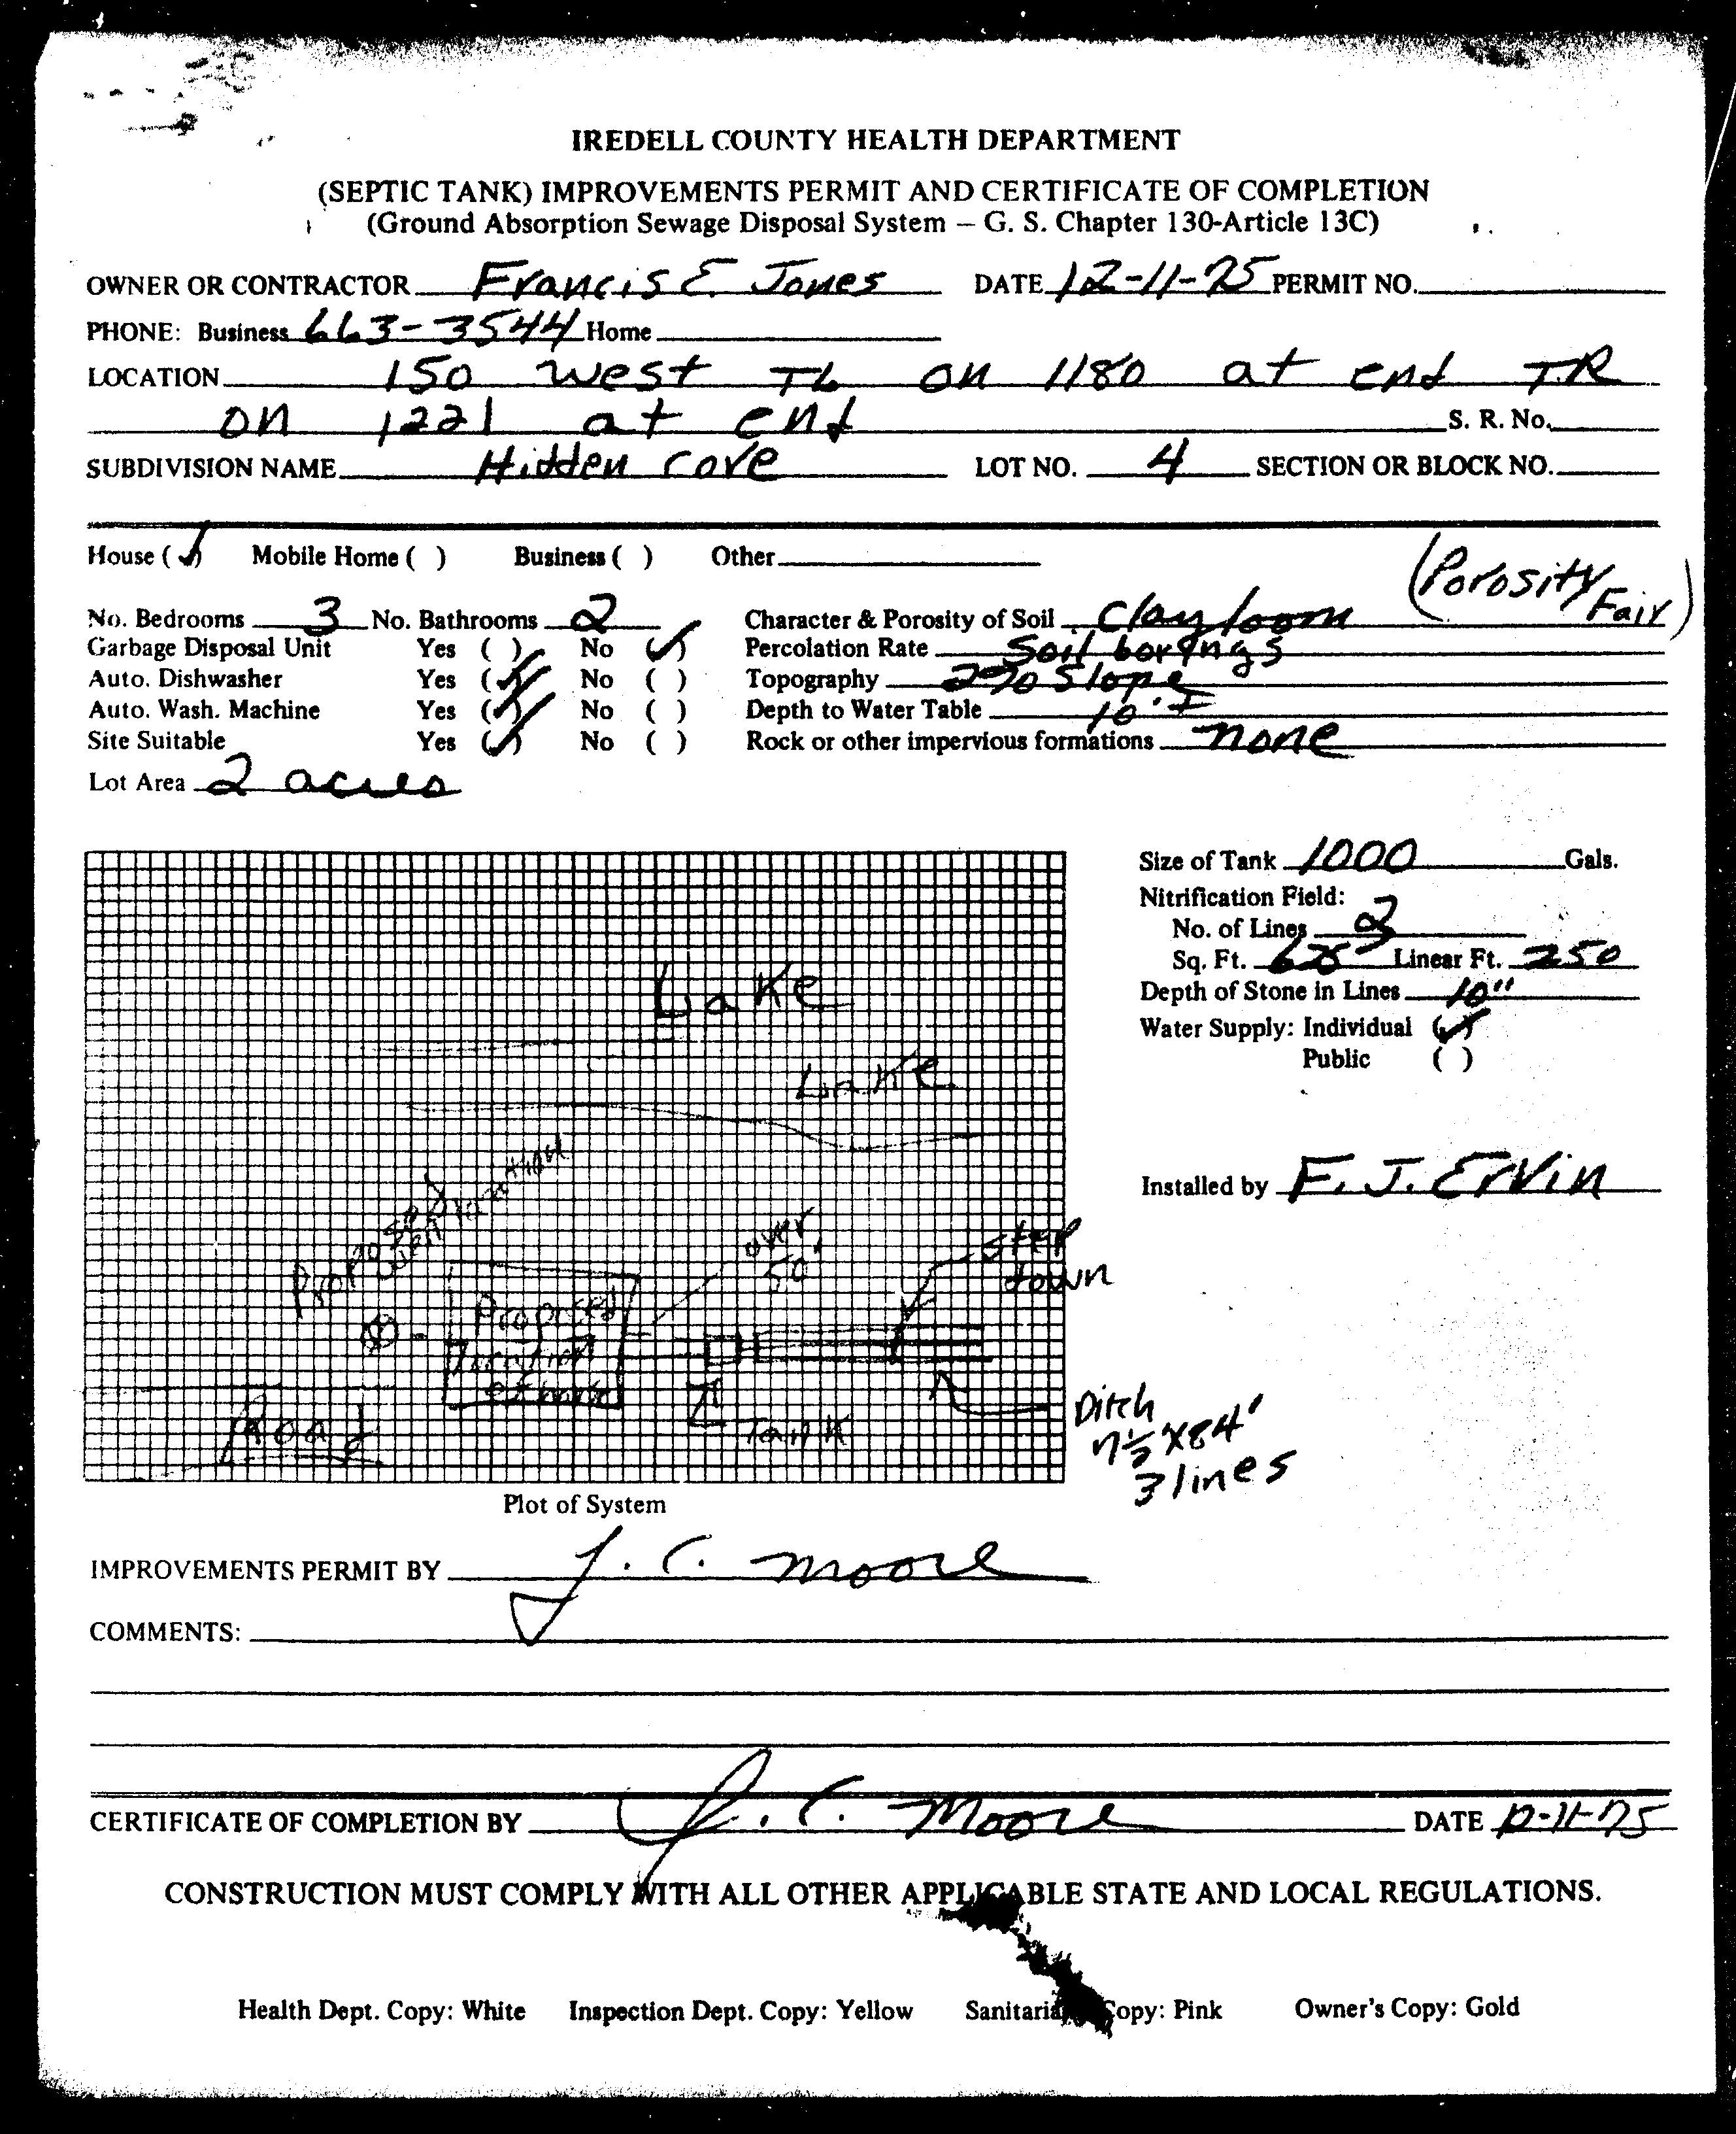 IREDELL COUNTY HEALTH DEPARTMENT
(SEPTIC TANK) IMPROVEMENTS PERMIT AND CERTIFICATE OF COMPLETION
(Ground Absorption Sewage Disposal System – G. S. Chapter 130-Article 13C)
OWNER OR CONTRACTOR Francis E. Jones DATE 12-11-75 PERMIT NO.
PHONE: Business 663-3544 Home
LOCATION 150 West TL on 1180 at end TR
on 1221 at end S. R. No.
SUBDIVISION NAME Hidden Cove LOT NO. 4 SECTION OR BLOCK NO.
House (✓) Mobile Home ( ) Business ( ) Other
(Porosity Fair)
No. Bedrooms 3 No. Bathrooms 2 Character & Porosity of Soil Clay loom
Garbage Disposal Unit Yes ( ) No (✓) Percolation Rate Soil borings
Auto. Dishwasher Yes (✓) No ( ) Topography 2% Slope
Auto. Wash. Machine Yes (✓) No ( ) Depth to Water Table 10' ±
Site Suitable Yes (✓) No ( ) Rock or other impervious formations none
Lot Area 2 acres
Size of Tank 1000 Gals.
Nitrification Field:
No. of Lines 3
Sq. Ft. 625 Linear Ft. 250
Depth of Stone in Lines 10"
Water Supply: Individual (✓)
Public ( )
Lake
Lake
Installed by F. J. Ervin
Proposed
well location
over
50'
Step
down
Proposed
location
of home
Road
Tank
Ditch
7½ X84'
3 lines
Plot of System
IMPROVEMENTS PERMIT BY J. C. Moore
COMMENTS:
CERTIFICATE OF COMPLETION BY J. C. Moore DATE 12-11-75
CONSTRUCTION MUST COMPLY WITH ALL OTHER APPLICABLE STATE AND LOCAL REGULATIONS.
Health Dept. Copy: White Inspection Dept. Copy: Yellow Copy: Pink Owner's Copy: Gold